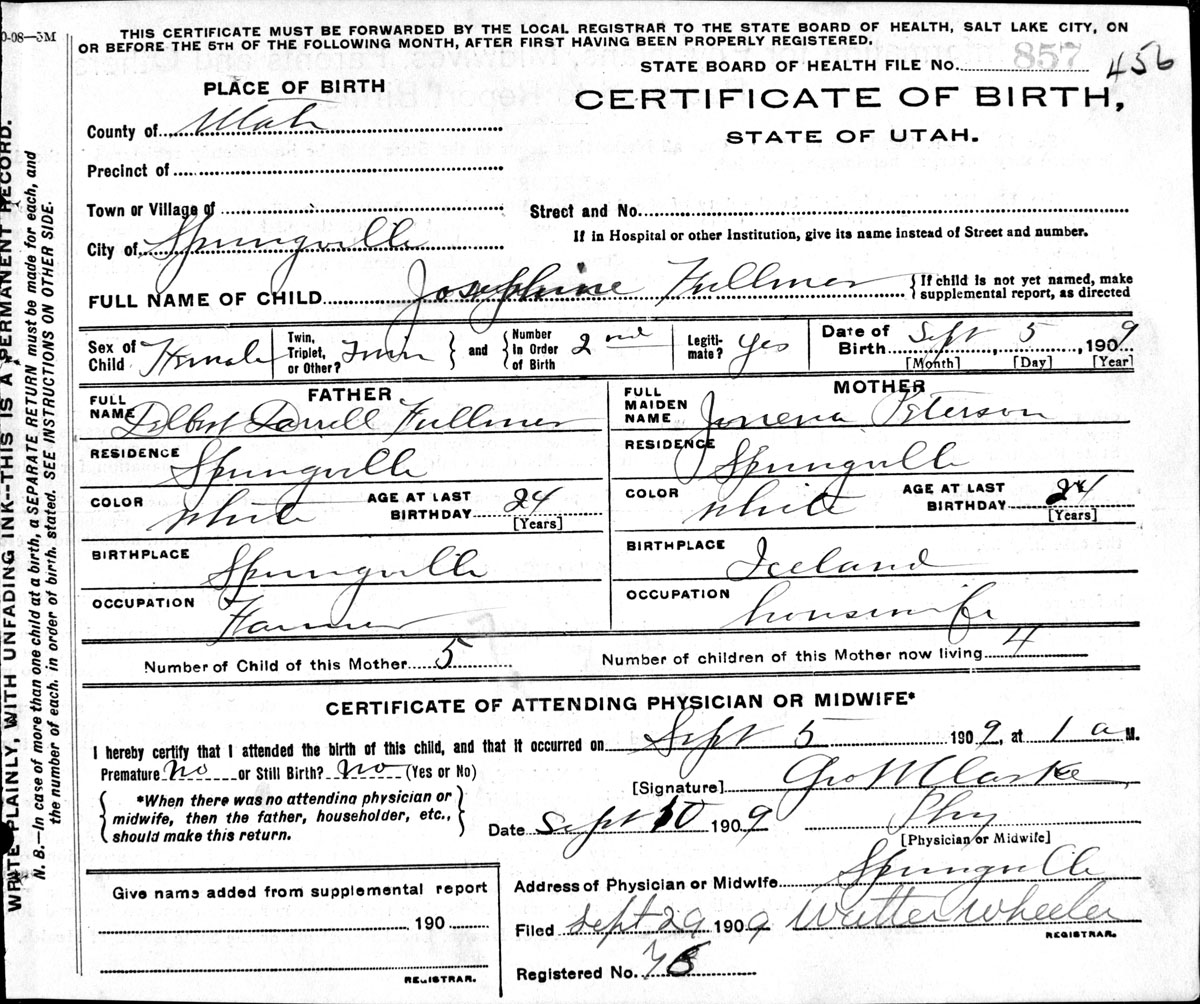 0-08—3M
THIS CERTIFICATE MUST BE FORWARDED BY THE LOCAL REGISTRAR TO THE STATE BOARD OF HEALTH, SALT LAKE CITY, ON
OR BEFORE THE 5TH OF THE FOLLOWING MONTH, AFTER FIRST HAVING BEEN PROPERLY REGISTERED.
STATE BOARD OF HEALTH FILE NO. 857 456
PLACE OF BIRTH
CERTIFICATE OF BIRTH,
STATE OF UTAH.
County of Utah
Precinct of
Town or Village of
Street and No.
City of Springville
If in Hospital or other Institution, give its name instead of Street and number.
FULL NAME OF CHILD Josephine Fullmer { If child is not yet named, make supplemental report, as directed
Sex of Child Female
Twin, Triplet, or Other? Twin } and { Number In Order of Birth 2nd
Legitimate? Yes
Date of Birth Sept 5, 1909
[Month] [Day] [Year]
FATHER
FULL NAME Delbert Darrell Fullmer
RESIDENCE Springville
COLOR White AGE AT LAST BIRTHDAY 24
[Years]
BIRTHPLACE Springville
OCCUPATION Farmer
MOTHER
FULL MAIDEN NAME Peterson
RESIDENCE Springville
COLOR White AGE AT LAST BIRTHDAY 24
[Years]
BIRTHPLACE Iceland
OCCUPATION housewife
Number of Child of this Mother 5
Number of children of this Mother now living 4
CERTIFICATE OF ATTENDING PHYSICIAN OR MIDWIFE*
I hereby certify that I attended the birth of this child, and that it occurred on Sept 5 1909, at 1 a M.
Premature No or Still Birth? No (Yes or No)
[Signature] Geo M Clarke
{ *When there was no attending physician or midwife, then the father, householder, etc., should make this return. }
Date Sept 10 1909 Phy
[Physician or Midwife]
Address of Physician or Midwife Springville
Give name added from supplemental report
190
REGISTRAR.
Filed Sept 29 1909 Walter Wheeler
REGISTRAR.
Registered No.
WRITE PLAINLY, WITH UNFADING INK--THIS IS A PERMANENT RECORD.
N. B.—In case of more than one child at a birth, a SEPARATE RETURN must be made for each, and
the number of each, in order of birth, stated. SEE INSTRUCTIONS ON OTHER SIDE.